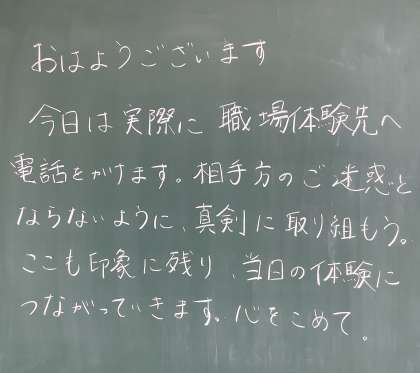 おはようございます
今日は実際に職場体験先へ
電話をかけます。相手方のご迷惑と
ならないように、真剣に取り組もう。
ここも印象に残り、当日の体験に
つながっていきます。心をこめて。